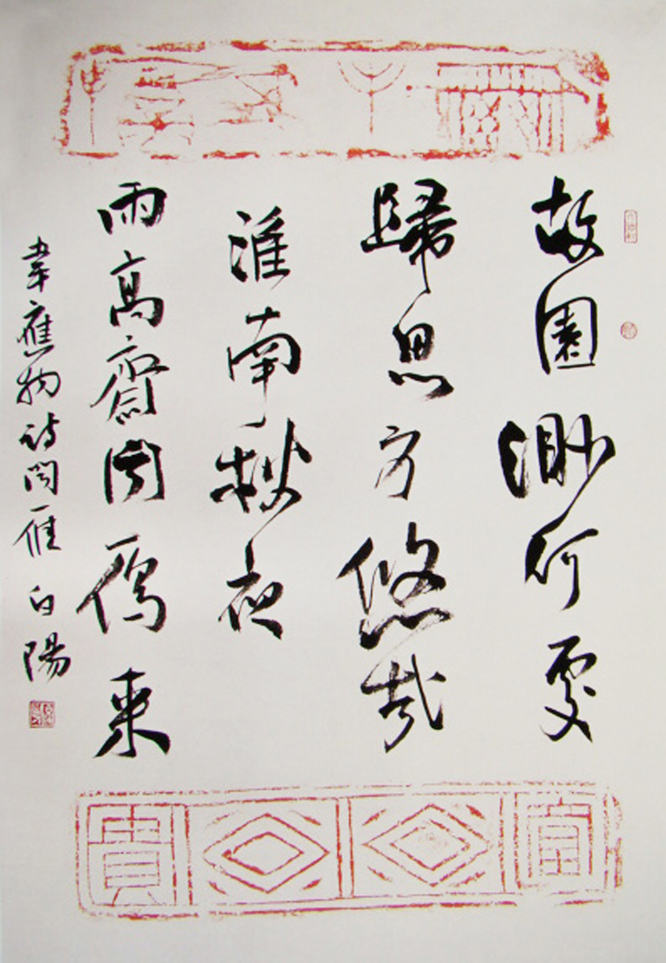 故園渺何處
歸思方悠哉
淮南秋夜
雨高齋聞鴈來
韋應物詩聞雁 白陽
富貴